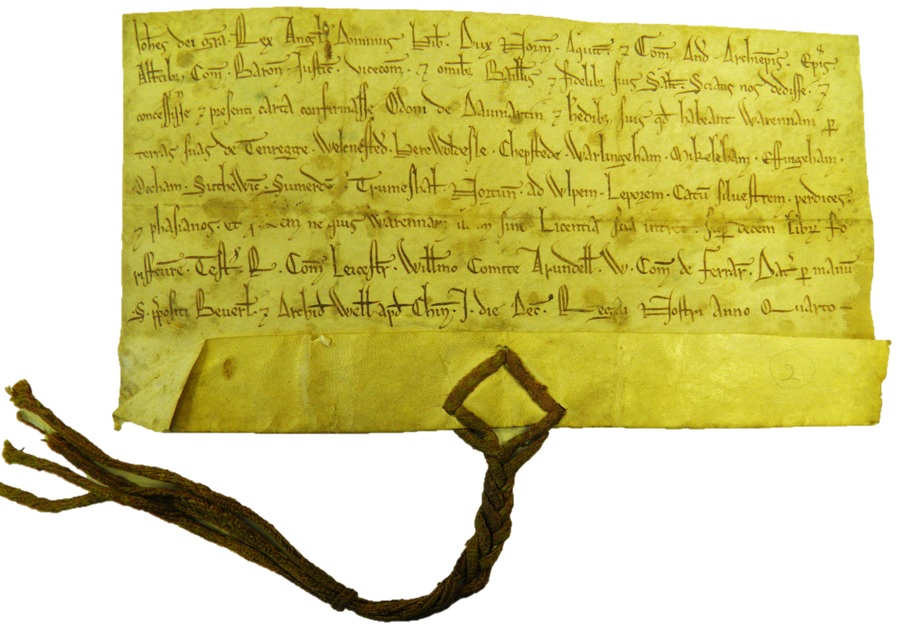 Ioħes dei gr̃a Rex Angl̃. Dominus Hib̃. Dux Norm̃. Aquit̃. ⁊ Com̃ And̃. Archiep̃is. Ep̃is
Abbtib; Com̃. Baroñ. Justic̃. vicecom̃. ⁊ omib; Baillis ⁊ fidelib; suis Salt̃. Sciatis nos dedisse. ⁊
concessisse ⁊ presenti carta confirmasse Odoni de Daunartin ⁊ h̃edib; suis qd̃ habeant Warennam p̱
terras suas de Tenregge. Welcnested. Herewoldesle. Chepstede. Warlingeham. Mikeleham. Effingeham.
Bocham. Suthewic̃. Sumerde Trumeshal̃. Nortuñ. ad Wlpem. Leporem. Catũ silvestrem. perdices.
⁊ phasianos. et ne quis Warennam in sine Licentia sua intret. sup̱ decem libr̃ fo
risfeture. Test̃. R. Com̃ Leicestr̃. Willmo Comite Arundell̃. W. Com̃ de Ferrar̃. Dat̃ p̱ manũ
S. p̃positi Beverl̃. ⁊ Archid̃ Well̃ apd̃ Chin̄. I. die Dec̃. Regni Nostri anno Quarto
2